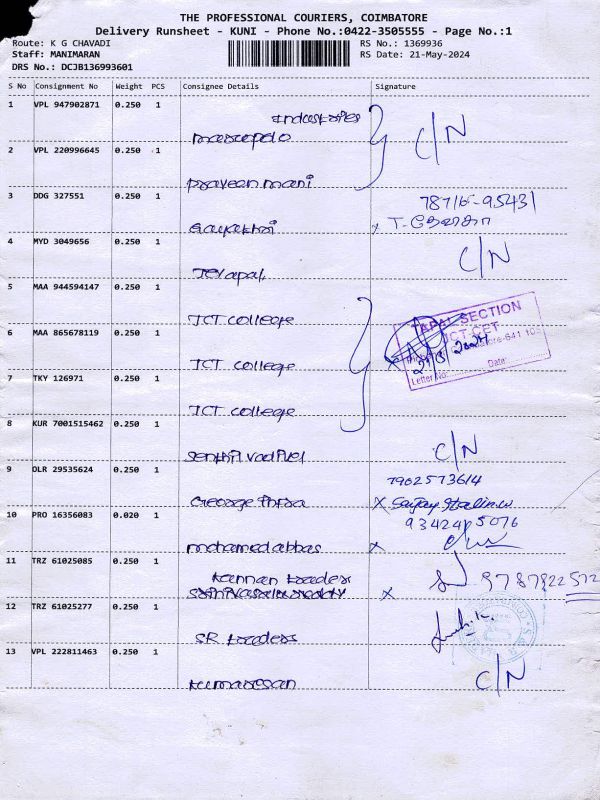 THE PROFESSIONAL COURIERS, COIMBATORE
Delivery Runsheet - KUNI - Phone No.:0422-3505555 - Page No.:1
Route: K G CHAVADI RS No.: 1369936
Staff: MANIMARAN RS Date: 21-May-2024
DRS No.: DCJB136993601
S No Consignment No Weight PCS Consignee Details Signature
1 VPL 947902871 0.250 1
Industries
C/N
2 VPL 220996645 0.250 1
praveen mani
3 DDG 327551 0.250 1
Gayathri
4 MYD 3049656 0.250 1
C/N
Jeyapal
5 MAA 944594147 0.250 1
JCT college
TAPAL SECTION
6 MAA 865678119 0.250 1
JCT college
21/5/2024
Letter No: Date:
7 TKY 126971 0.250 1
JCT college
8 KUR 7001515462 0.250 1
Senthil vadivel C/N
9 DLR 29535624 0.250 1
7902573614
George x
10 PRO 16356083 0.020 1
mohamed abbas x
11 TRZ 61025085 0.250 1
Kannan traders
x
12 TRZ 61025277 0.250 1
SR traders
13 VPL 222811463 0.250 1
Kumaresan C/N